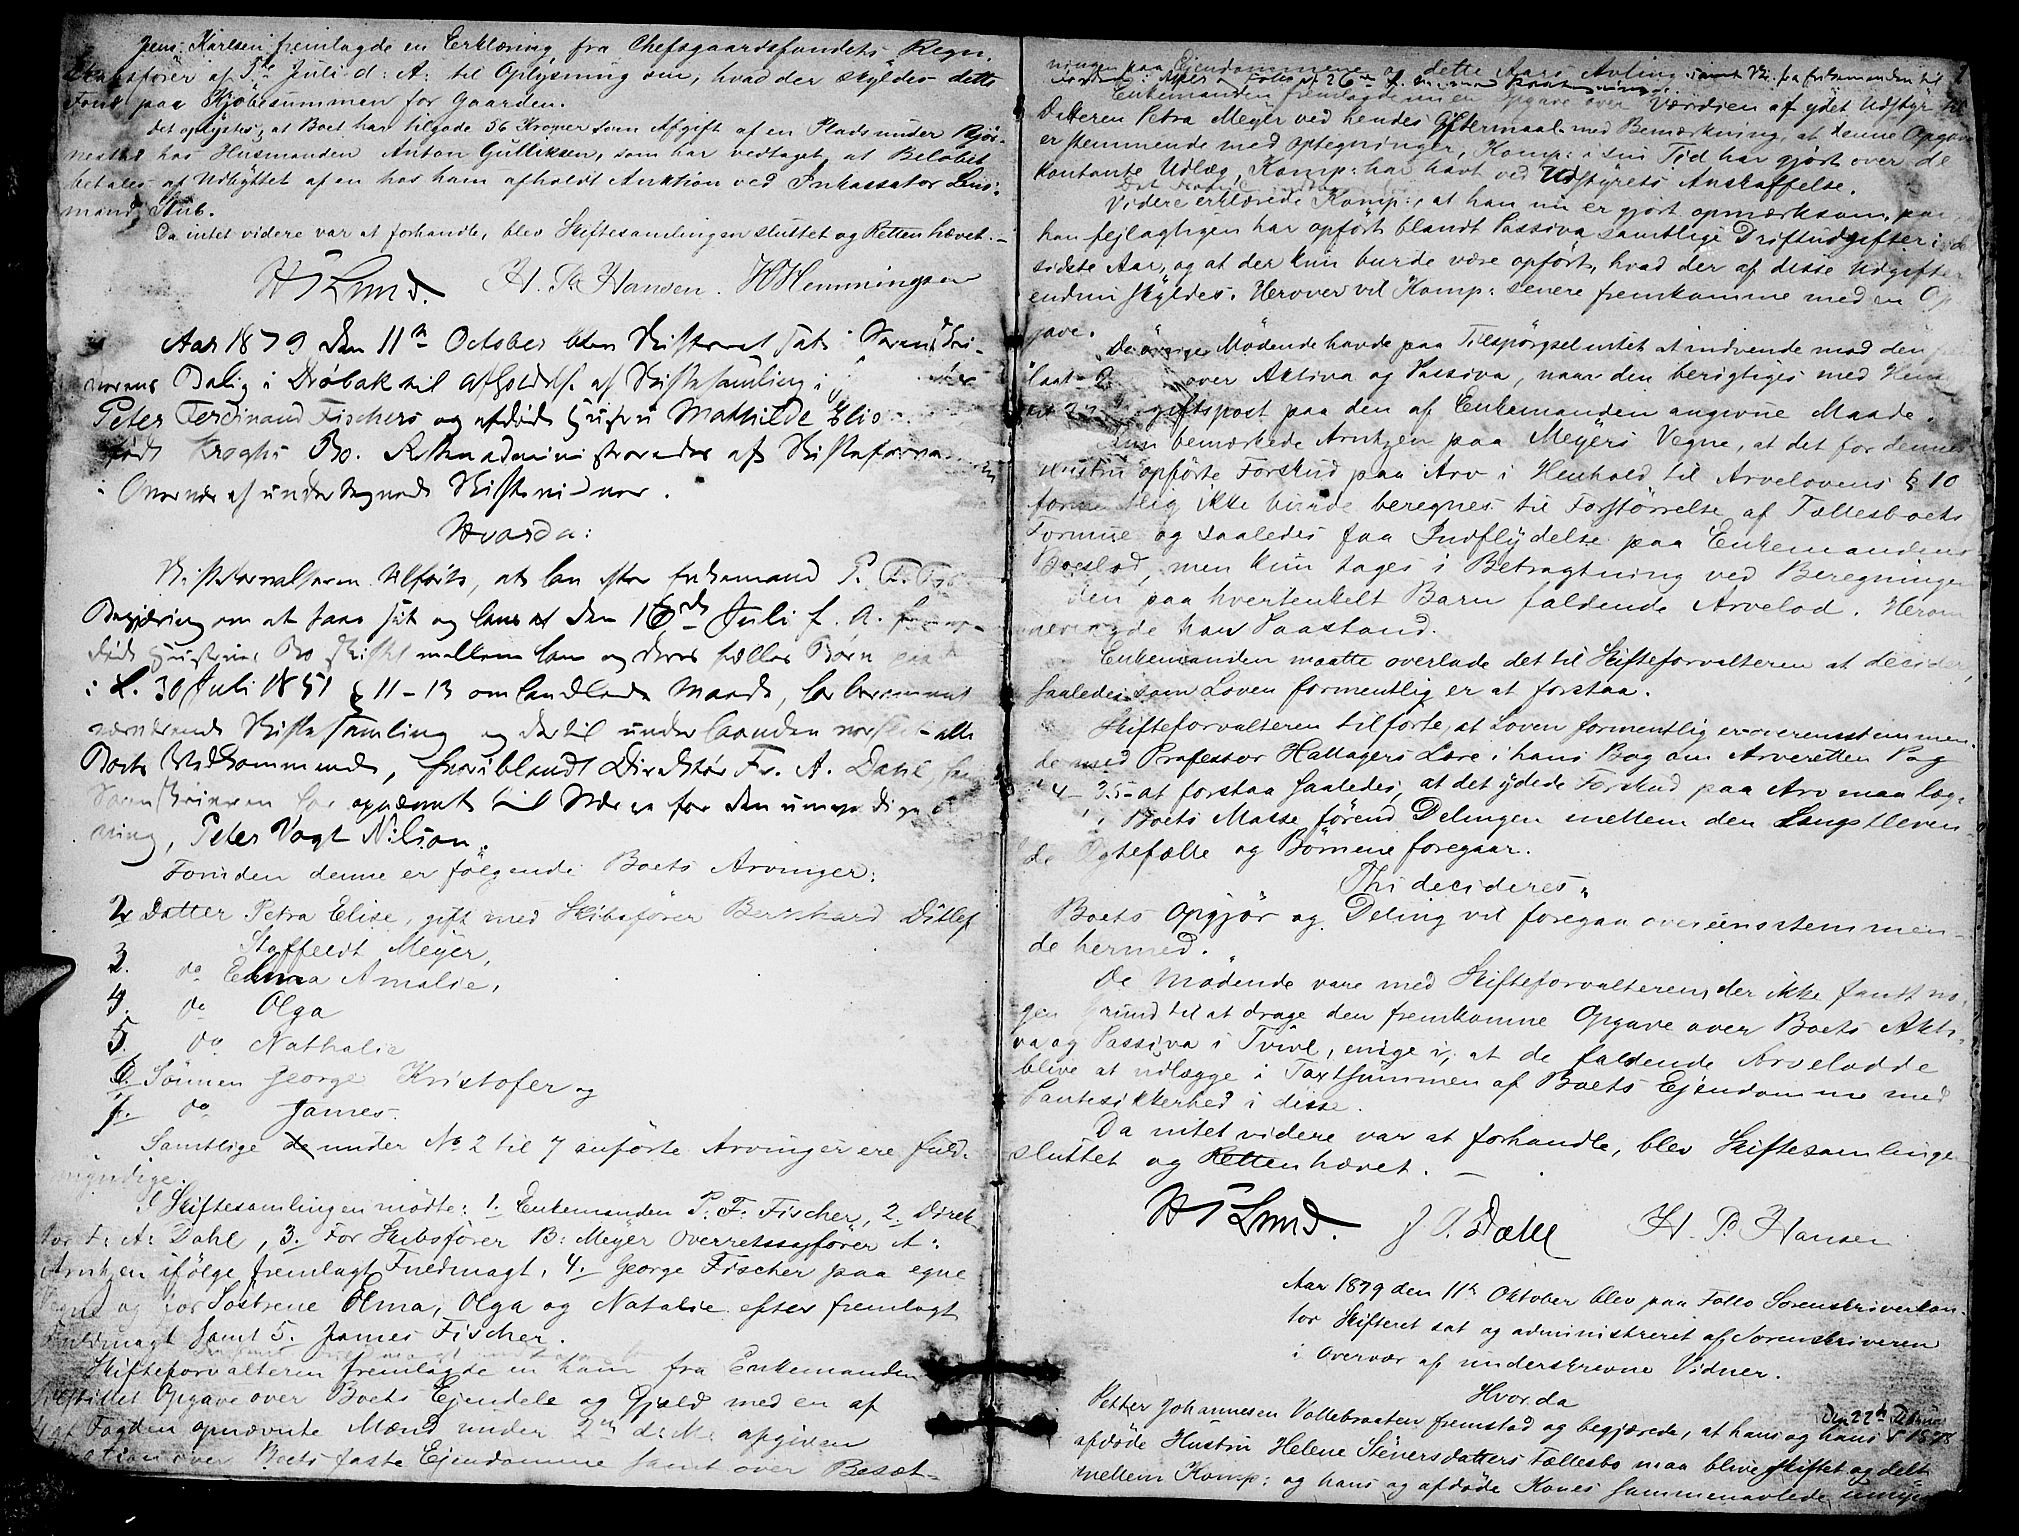 Jens Karlsen fremlagde en Erklæring fra Chefsgaardsfondets Regn-
skabsfører af 5te Juli d: A: til Oplysning om, hvad der skyldes dette
Fond paa Kjøbesummen for Gaarden.
Det oplystes, at Boet har tilgode 56 Kroner som Afgift af en Plads under
hos Husmanden Anton Gulliksen, som har vedtaget, at Beløbet
betales af Udbyttet af en hos ham afholdt Auktion ved Inkassator Lens-
mand Stub.
Da intet videre var at forhandle, blev Skiftesamlingen sluttet og Retten hævet.
H. P. Hansen. H Hemmingsen
Aar 1879 den 11te October blev Skifteret sat i Sorenskri-
verens Bolig i Drøbak til Afholdelse af Skiftesamling i
Peter Ferdinand Fischers og afdøde Hustru Mathilde Elis
født Kroghs Bo. Retten administreredes af Skifteforva
i Overvær af undertegnede Skiftevidner.
Hvorda:
Skifteforvalteren tilførte, at han efter Enkemand P. F.
Begjæring om at faa sit og hans den 16de Juli f. A.
døde Hustrues Bo skiftet mellem ham og deres fælles Børn paa
i L. 30 Juli 1851 § 11-13 omhandlede Maade, har berammet
nærværende Skiftesamling og dertil under Haanden alle
Boets Vedkommende, hvoriblandt Direktør Fr. A. Dahl
Sorenskriveren har opnævnt til Værge for den umyndige
ning, Peter Vogt Nilsen.
Foruden denne er følgende Boets Arvinger:
2. Datter Petra Elise, gift med Skibsfører Bernhard Ditlef
Staffeldt Meyer,
3. do Elma Amalie,
4. do Olga
5. do Nathalie
6. Sønnen George Kristofer og
7. do James
Samtlige under No 2 til 7 anførte Arvinger ere fuld-
myndige.
I Skiftesamlingen mødte: 1. Enkemanden P. F. Fischer, 2. Direk-
tør F: A: Dahl, 3. For Skibsfører B: Meyer Overretssagfører A:
Arntzen ifølge fremlagt Fuldmagt, 4. George Fischer paa egne
Vegne og for Søstrene Elma, Olga og Natalie efter fremlagt
Fuldmagt samt 5. James Fischer.
Skifteforvalteren fremlagde en ham fra Enkemanden
tilstillet Opgave over Boets Ejendele og Gjæld med en af
af Fogden opnævnte Mænd under 2den d: M: afgiven
over Boets faste Ejendomme samt over Besæt-
ningen paa Ejendommene og dette Aars Avling samt fra Enkemanden til
Enkemanden fremlagde en Opgave over Værdien af ydet Udstyr til
Datteren Petra Meyer ved hendes Giftermaal med Bemærkning, at denne Opgave
er stemmende med Optegninger, Komp: i sin Tid har gjort over de
kontante Udlæg, Komp: har havt ved Udstyrets Anskaffelse.
Videre erklærede Komp:, at han nu er gjort opmærksom paa,
han fejlagtigen har opført blandt Passiva samtlige Driftudgifter i det
sidste Aar, og at der kun burde være opført, hvad der af disse Udgifter
endnu skyldes. Herover vil Komp: senere fremkomme med en Op-
gave.
De øvrige Mødende havde paa Tilspørgsel intet at indvende mod den
over Aktiva og Passiva, naar den berigtiges med Hen
giftspost paa den af Enkemanden angivne Maade.
Kun bemærkede Arntzen paa Meyers Vegne, at det for dennes
Hustru opførte Forskud paa Arv i Henhold til Arvelovens § 10
formentlig ikke burde beregnes til Forstørrelse af Fællesboets
Formue og saaledes faa Indflydelse paa Enkemandens
Boeslod, men kun tages i Betragtning ved Beregningen
den paa hvertenkelt Barn faldende Arvelod. Herom
nedlagde han Paastand.
Enkemanden maatte overlade det til Skifteforvalteren at decidere,
saaledes som Loven formentlig er at forstaa.
Skifteforvalteren tilførte, at Loven formentlig er overensstemmen-
de med Professor Hallagers Lære i hans Bog om Arveretten Pag
34-35 at forstaa saaledes, at det ydede Forskud paa Arv maa læg-
i Boets Masse førend Delingen mellem den Længstleven-
de Ægtefælle og Børnene foregaar.
Thi decideres:
Boets Opgjør og Deling vil foregaa overensstemmen-
de hermed.
De Mødende vare med Skifteforvalteren, der ikke fandt no-
gen Grund til at drage den fremkomne Opgave over Boets Akti-
va og Passiva i Tvivl, enige i, at de faldende Arvelodde
blive at udlægge i Taxtsummen af Boets Ejendomme med
Pantesikkerhed i disse.
Da intet videre var at forhandle, blev Skiftesamlingen
sluttet og Retten hævet.
H. P. Hansen
Aar 1879 den 11te Oktober blev paa Follo Sorenskriverkon-
tor Skifteret sat og administreret af Sorenskriveren
i Overvær af underskrevne Vidner.
Hvorda
Petter Johannesen Vollebraaten fremstod og begjærede, at hans og hans den 22de Februar 1878
afdøde Hustru Helene Stenersdatters Fællesbo maa blive skiftet og delt
mellem Komp: og hans og afdøde Kones sammenavlede